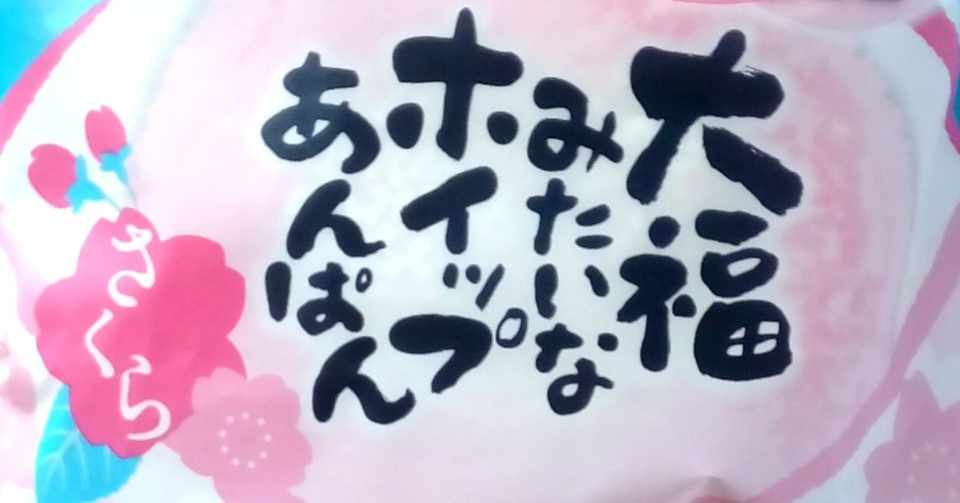 大福
みたいな
ホイップ
あんぱん
さくら